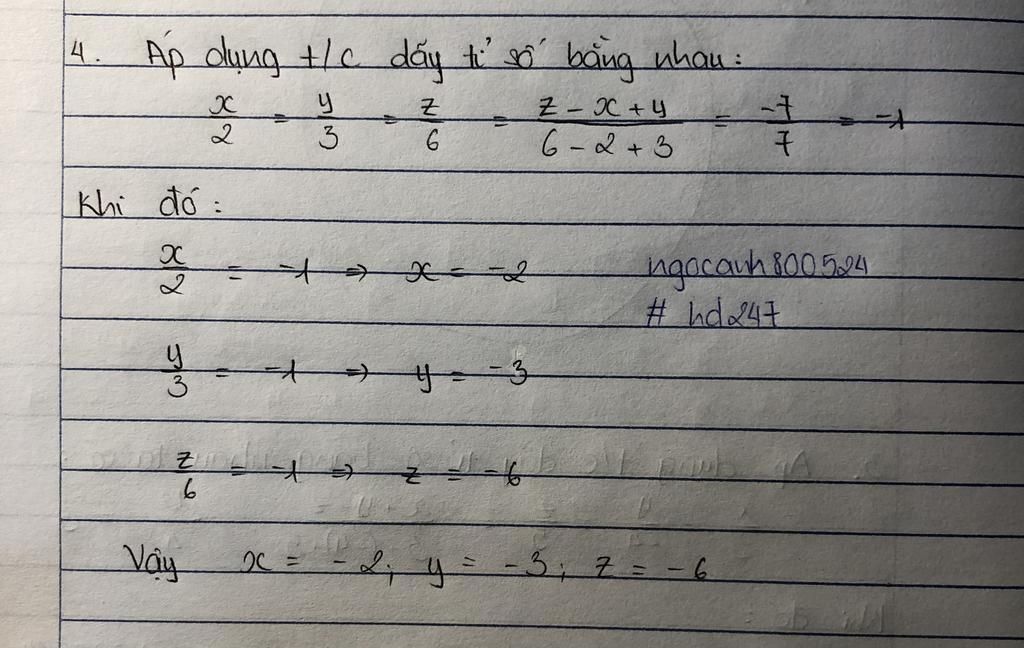 4. Áp dụng t/c dãy tỉ số bằng nhau:
x/2 = y/3 = z/6 = (z - x + y)/(6 - 2 + 3) = -7/7 = -1
Khi đó:
x/2 = -1 => x = -2
ngocanh800524
# hd247
y/3 = -1 => y = -3
z/6 = -1 => z = -6
Vậy x = -2; y = -3; z = -6